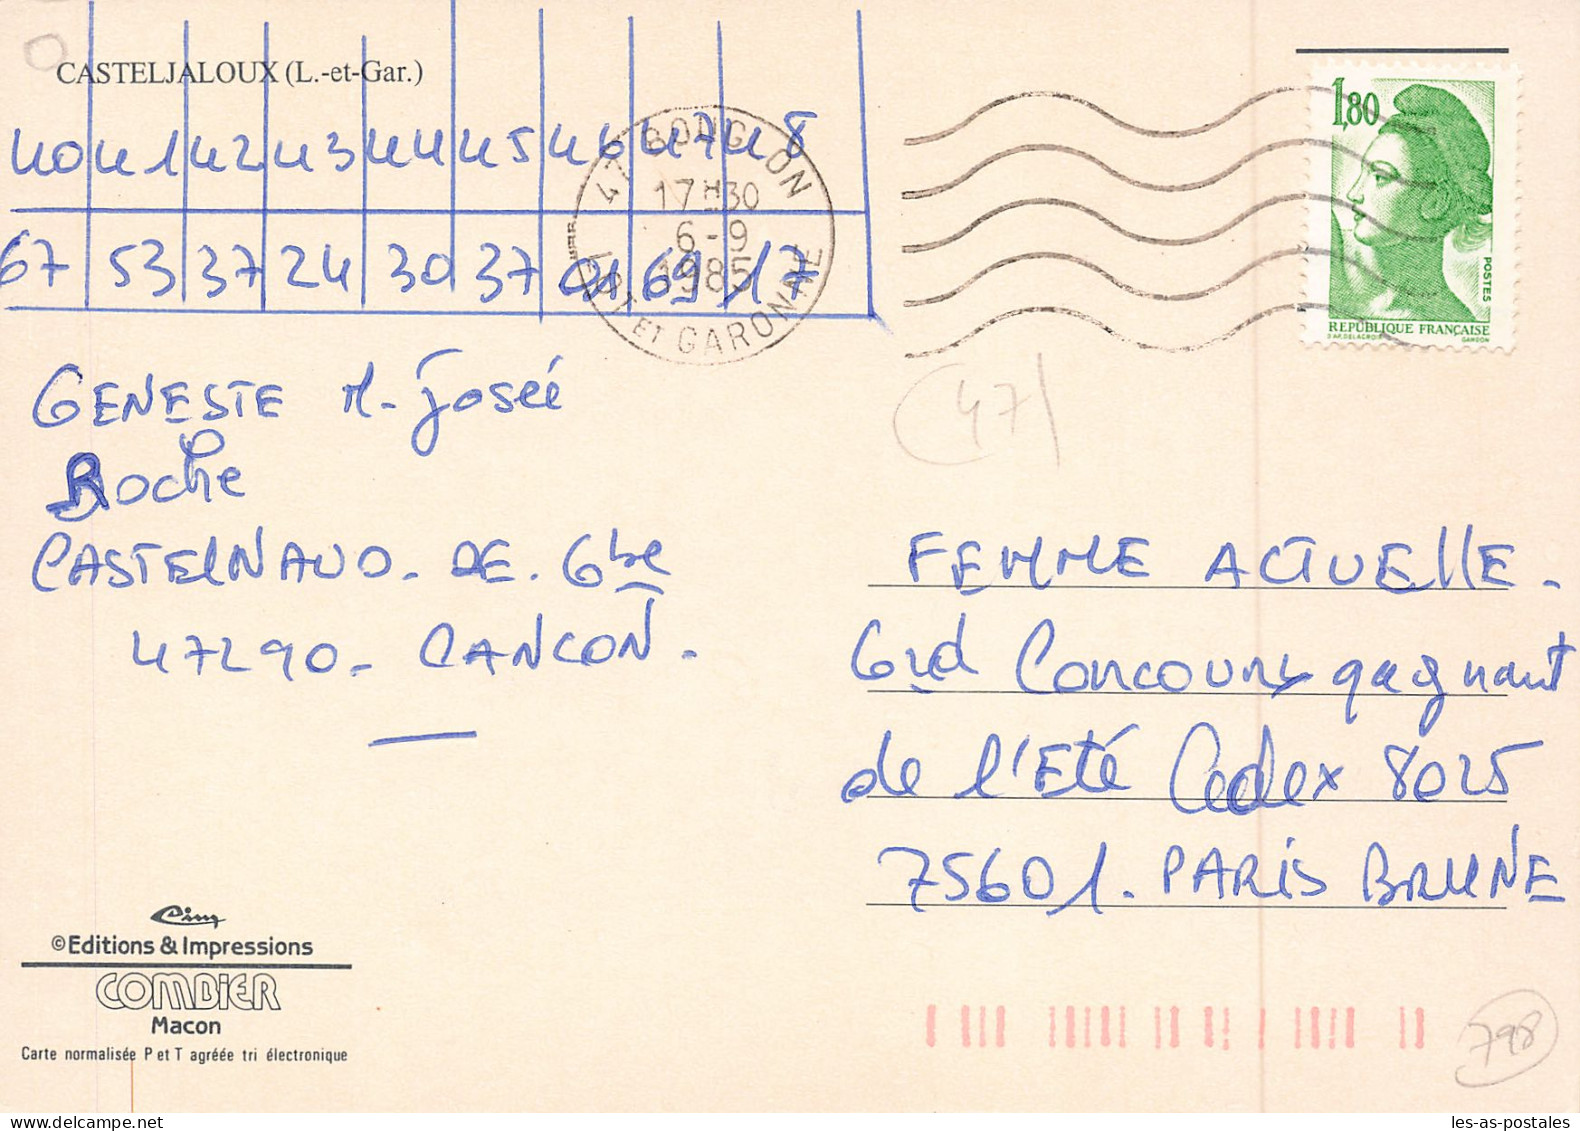 CASTELJALOUX (L.-et-Gar.)
40 41 42 43 44 45 46 47 48
67 53 37 24 30 37 01 69 17
47 BOUGLON
17H30
6-9
1985
LOT ET GARONNE
1,80
POSTES
RÉPUBLIQUE FRANÇAISE
D'AP. DELACROIX GANDON
(47)
GENESTE M-Josée
Roche
CASTELNAUD. DE. Gbe
47290 - CANCON.
FEMME ACTUELLE.
Grd Concours gagnant
de l'Eté Cedex 8025
75601. PARIS BRUNE
Cim
©Editions & Impressions
COMBIER
Macon
Carte normalisée P et T agréée tri électronique
798
les-as-postales